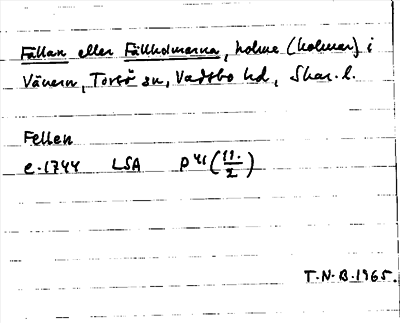 Fällan eller Fällholmarna, holme (holmar) i
Vänern, Torsö sn, Vadsbo hd, Skar. l.
Fellen
e. 1744 LSA P 41 (11./2)
T. N. B. 1965.